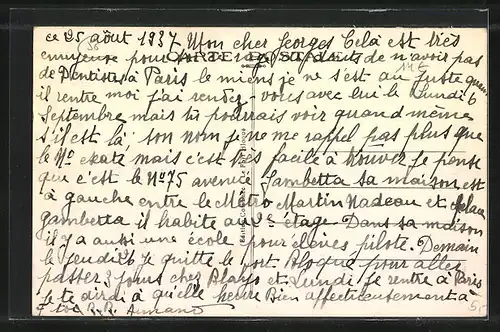 ce 25 août 1937 Mon cher Georges Celà est très
ennuyeuse pour toi ce rage de dents de n'avoir pas
de Dentiste à Paris le miens je ne s'est au juste quen
il rentre moi j'ai rendez vous avec lui le Lundi 6
Septembre mais tu pourrais voir quand même
s'il est là son nom je ne me rappel pas plus que
le No exate mais c'est très facile à trouver je pense
que c'est le No 75 avenue Gambetta sa maison est
à gauche entre le Métro Martin Nadeau et place
gambetta il habite au 2e étage Dans sa maison
il y a aussi une école pour élèves pilote. Demain
le jeudi 26 je quitte le port Bloqué pour aller
passer 3 jours chez et Lundi je rentre à Paris
je te dirai à qu'elle heure Bien affectieusement à
toi R.R. Armand
CARTE POSTALE